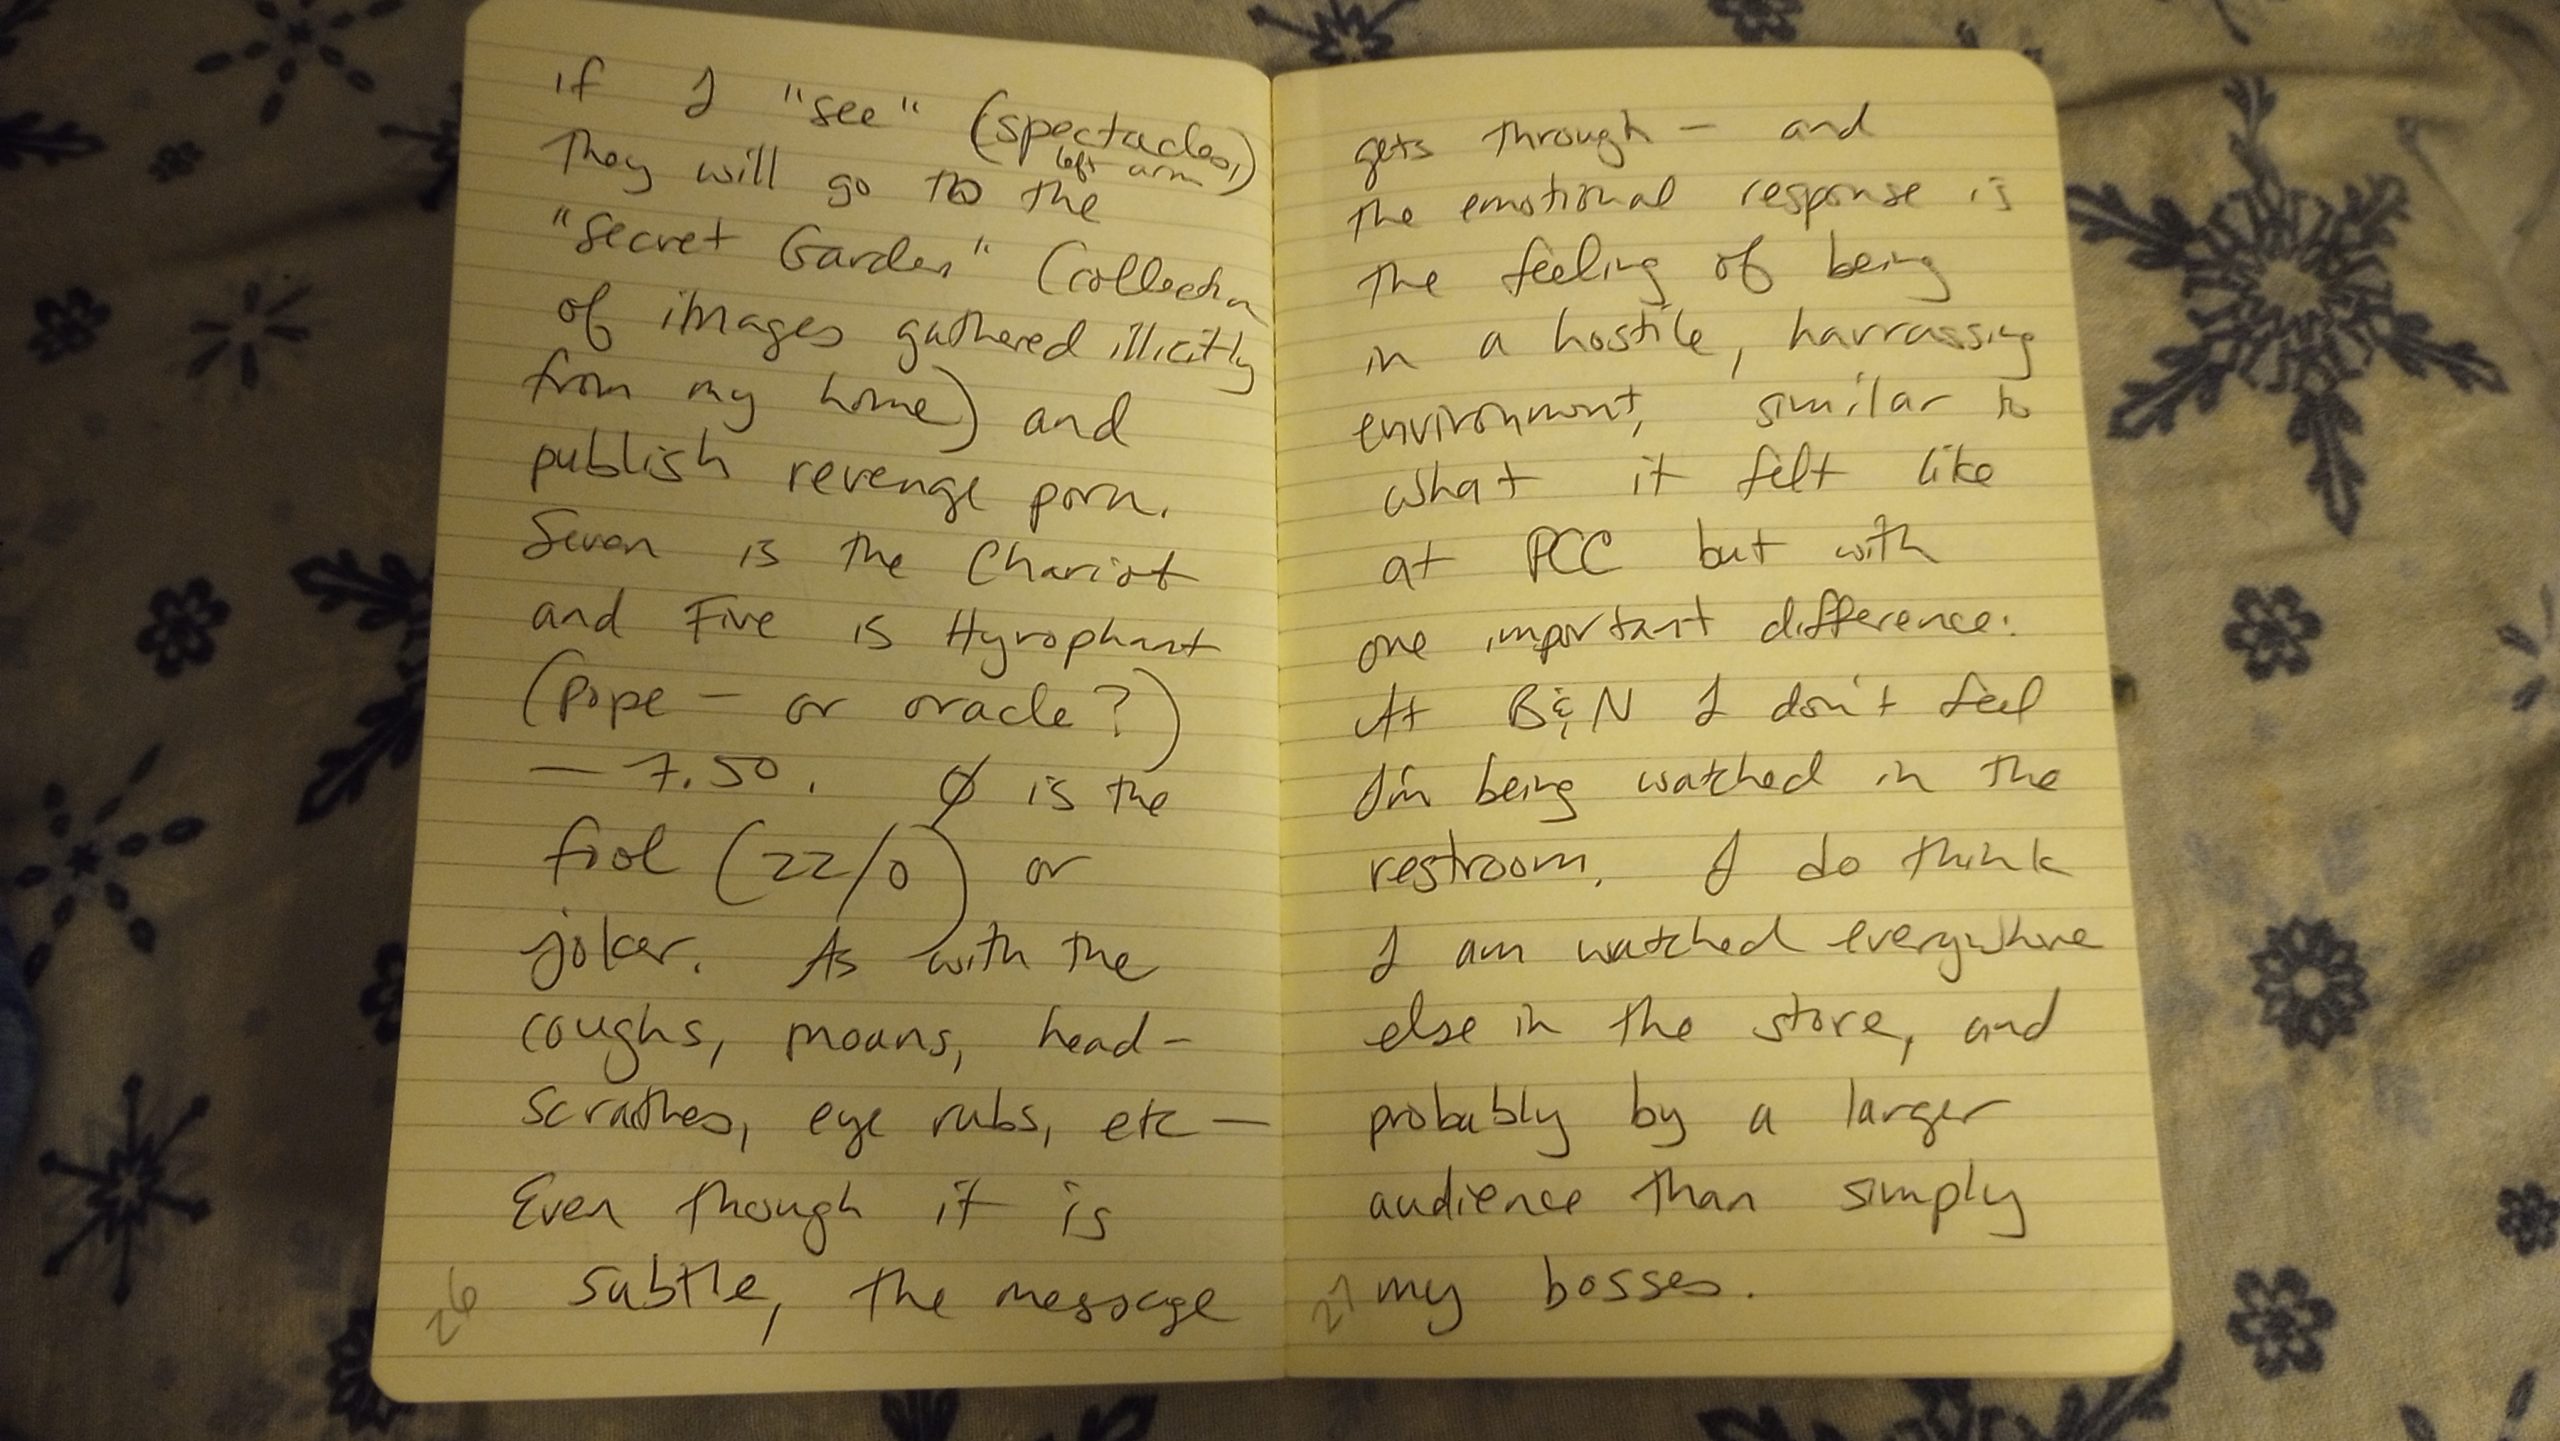 if I "see" (spectacles,
left arm)
They will go to the
"Secret Garden" (collection
of images gathered illicitly
from my home) and
publish revenge porn.
Seven is the Chariot
and Five is Hyrophant
(Pope – or oracle?)
– 7.50. Ø is the
fool (22/0) or
joker. As with the
coughs, moans, head-
scratches, eye rubs, etc –
Even though it is
subtle, the message
26
gets through – and
the emotional response is
the feeling of being
in a hostile, harrassing
environment, similar to
what it felt like
at PCC but with
one important difference:
At B&N I don't feel
I'm being watched in the
restroom. I do think
I am watched everywhere
else in the store, and
probably by a larger
audience than simply
my bosses.
27